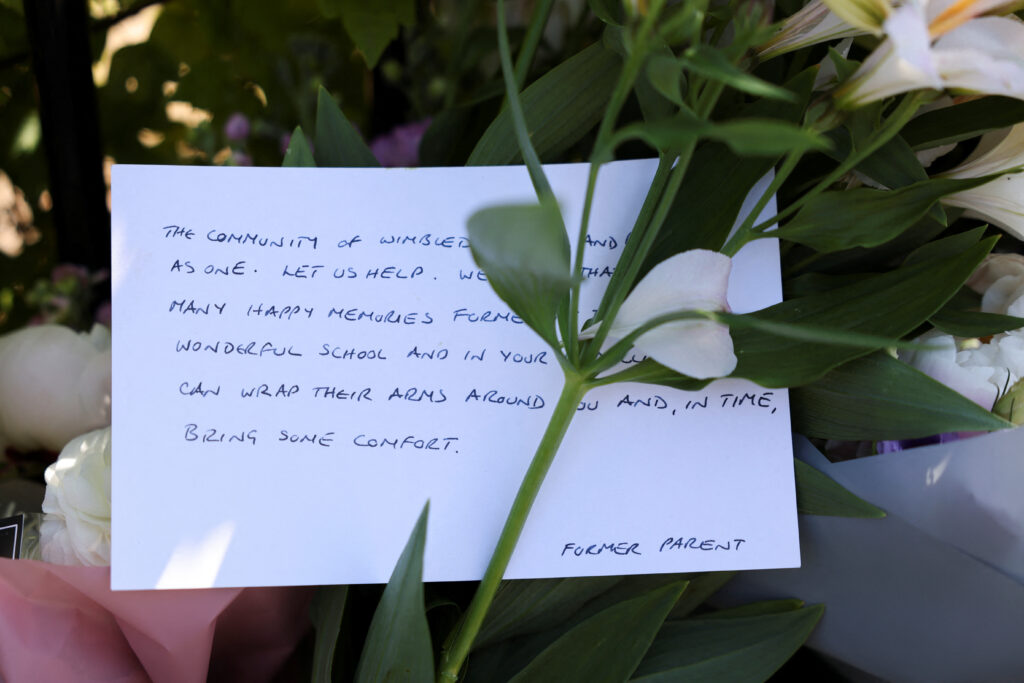 THE COMMUNITY OF WIMBLED AND
AS ONE. LET US HELP. WE THA
MANY HAPPY MEMORIES FORME
WONDERFUL SCHOOL AND IN YOUR
CAN WRAP THEIR ARMS AROUND OU AND, IN TIME,
BRING SOME COMFORT.
FORMER PARENT